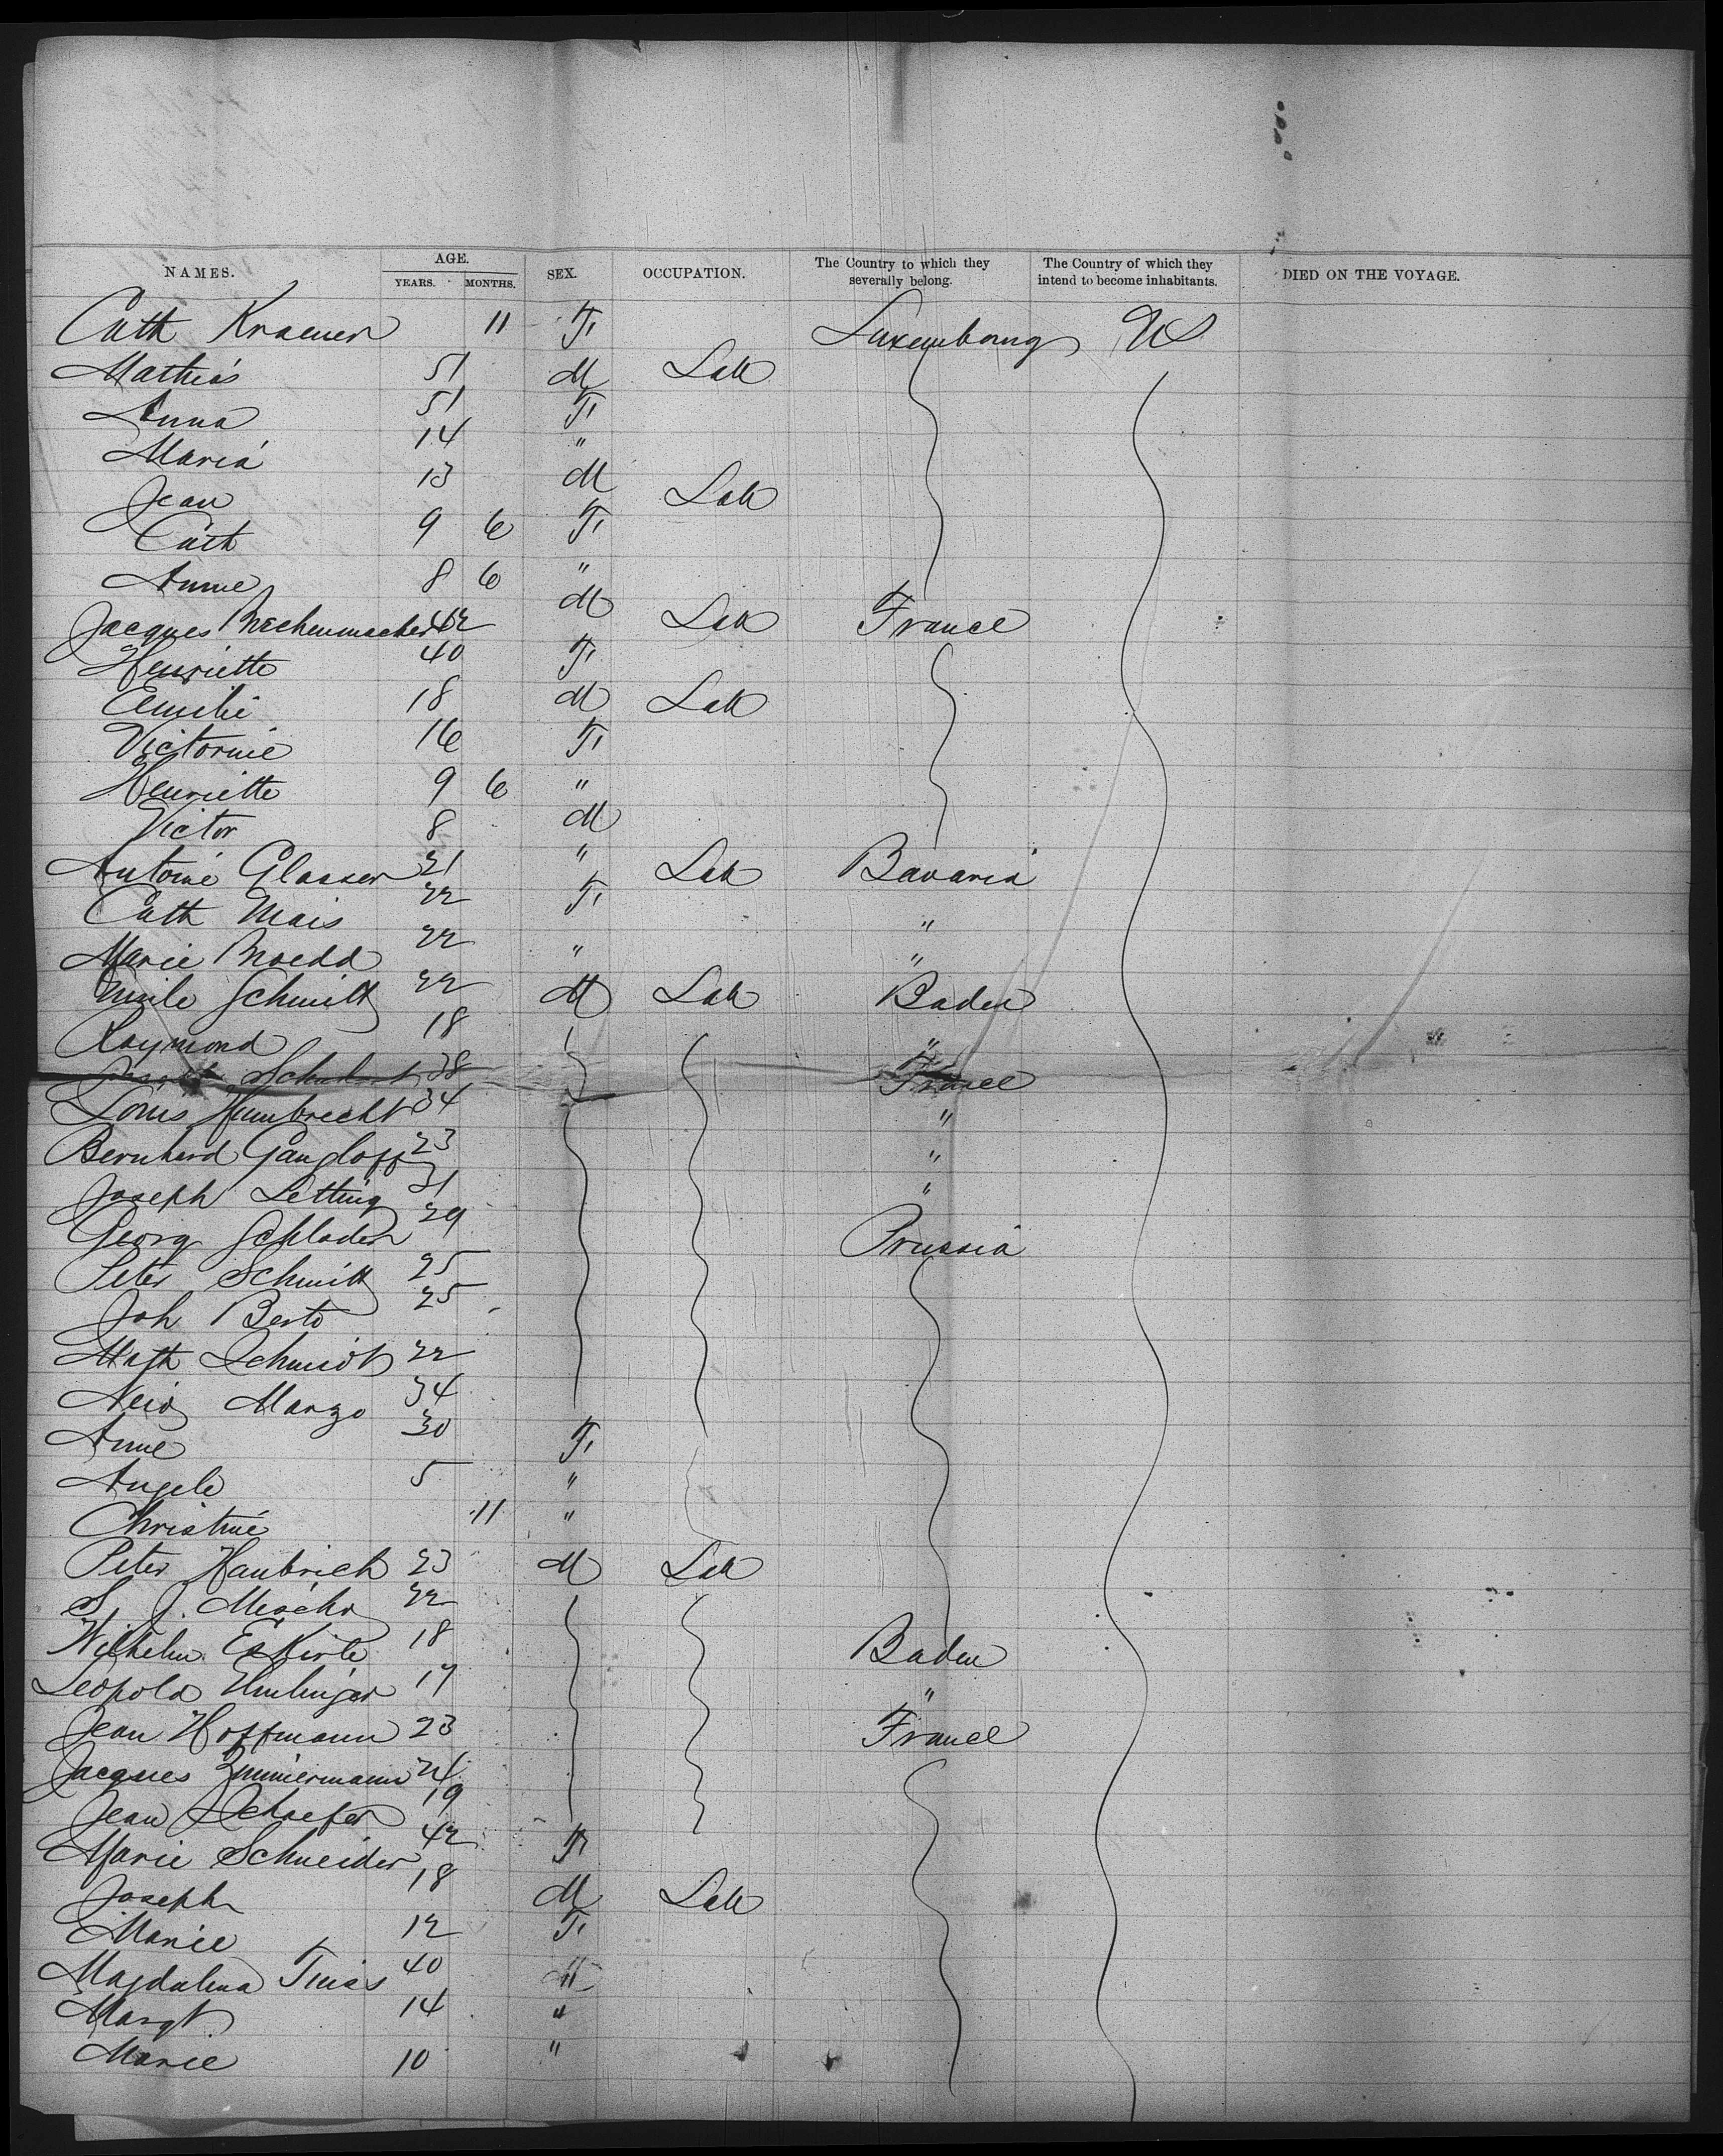 NAMES. AGE. YEARS. MONTHS. SEX. OCCUPATION. The Country to which they severally belong. The Country of which they intend to become inhabitants. DIED ON THE VOYAGE.
Cath Kraemer 11 F Luxembourg US
Mathias 51 M Lab
Anna 51 F
Maria 14 "
Jean 13 M Lab
Cath 9 6 F
Anne 8 6 "
Jacques 42 M Lab France
Henriette 40 F
Emile 18 M Lab
Victorine 16 F
Henriette 9 6 "
Victor 8 M
Antoine Glasser 21 " Lab Bavaria
Cath Mais 22 F "
Marie 22 " "
Emile Schmitt 22 M Lab Baden
Raymond 18 "
Joseph 38 France
Louis Humbrecht 34 "
Bernhard Gangloff 23 "
Joseph Letting 31 "
Georg Schlader 29 Prussia
Peter Schmitt 25
Joh 25
Math Schmidt 22
34
Anne 30 F
Angele 5 "
Christine 11 "
Peter Haubrich 23 M Lab
S J. 22
Wilhelm 18 Baden
Leopold 17 "
Jean Hoffmann 23 France
Jacques Zimmermann 24
Jean Schaefer 19
Marie Schneider 42 F
Joseph 18 M Lab
Marie 12 F
Magdalena 40 "
Margt 14 "
Marie 10 "